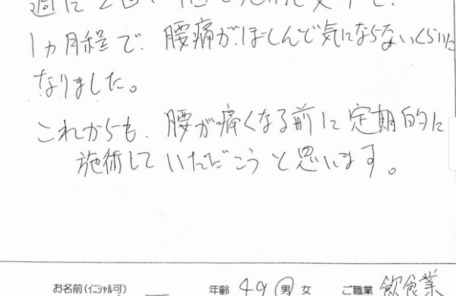 週に2回
1ヵ月程で、腰痛がほとんど気にならないくらいに
なりました。
これからも、腰が痛くなる前に定期的に
施術していただこうと思います。
お名前(イニシャル可) 年齢 49 男 女 ご職業 飲食業